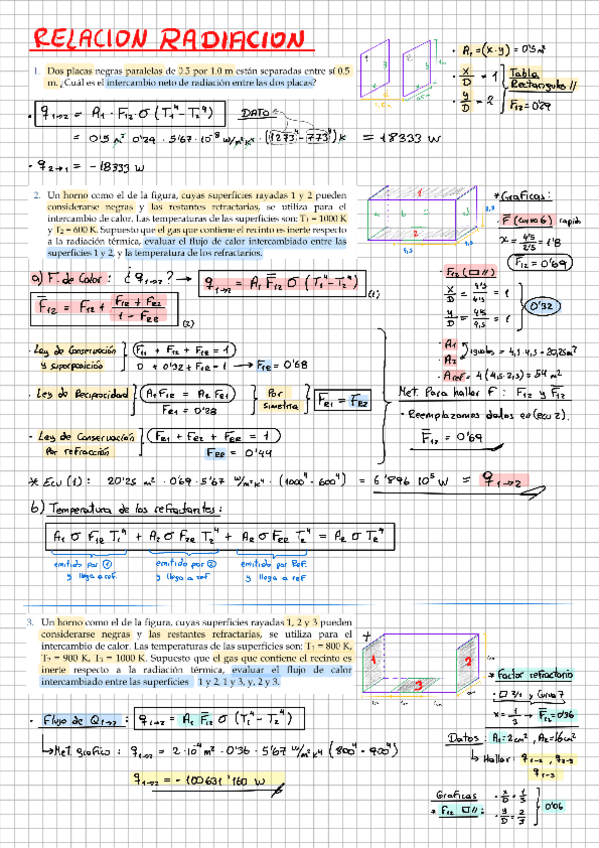 RELACION RADIACION
1. Dos placas negras paralelas de 0.5 por 1.0 m están separadas entre sí 0.5
m. ¿Cuál es el intercambio neto de radiación entre las dos placas?
A₁ = (x·y) = 0'5 m²
x/D = 1
y/D = 2
Tabla
Rectangulos //
F₁₂ = 0'29
q₁→₂ = A₁ · F₁₂ σ (T₁⁴ - T₂⁴)
DATO
= 0'5 m² 0'29 · 5'67·10⁻⁸ w/m²K⁴ · (1273⁴ - 773⁴) K = 18333 W
· q₂→₁ = - 18333 W
2. Un horno como el de la figura, cuyas superficies rayadas 1 y 2 pueden
considerarse negras y las restantes refractarias, se utiliza para el
intercambio de calor. Las temperaturas de las superficies son: T₁ = 1000 K
y T₂ = 600 K. Supuesto que el gas que contiene el recinto es inerte respecto
a la radiación térmica, evaluar el flujo de calor intercambiado entre las
superficies 1 y 2, y la temperatura de los refractarios.
1
2
* Graficas:
· F̅ (curva 6) rapido
x = 4'5/2'5 = 1'8
F̅₁₂ = 0'69
a) F. de Calor: ¿q₁→₂? → q₁→₂ = A₁ F̅₁₂ σ (T₁⁴ - T₂⁴) (1)
F̅₁₂ = F₁₂ + (F₁R + FR₂)/(1 - FRR) (2)
· F₁₂ (□ //)
x/D = 4'5/4'5 = 1
y/D = 4'5/4'5 = 1
0'32
· Ley de Conservación
y superposición
F₁₁ + F₁₂ + F₁R = 1
0 + 0'32 + F₁R = 1 → F₁R = 0'68
· A₁
· A₂
iguales = 4,5·4,5 = 20,25m²
· Aref = 4(4,5·2,5) = 54 m²
· Ley de Reciprocidad
A₁F₁R = AR FR₁
FR₁ = 0'28
Por
simetria
FR₁ = FR₂
Met. Para hallar F: F₁₂ y F̅₁₂
· Reemplazamos dados en (ecu 2).
F̅₁₂ = 0'69
· Ley de Conservación
Por refracción
FR₁ + FR₂ + FRR = 1
FRR = 0'44
* Ecu (1): 20'25 m² · 0'69 · 5'67 w/m²K⁴ · (1000⁴ - 600⁴) = 6'896 10⁵ W = q₁→₂
b) Temperatura de los refractantes:
A₁ σ F₁R T₁⁴ + A₂ σ F₂R T₂⁴ + AR σ FRR TR⁴ = AR σ TR⁴
emitido por ①
y llega a ref
emitido por ②
y llega a ref
emitido por Ref.
y llega a ref
3. Un horno como el de la figura, cuyas superficies rayadas 1, 2 y 3 pueden
considerarse negras y las restantes refractarias, se utiliza para el
intercambio de calor. Las temperaturas de las superficies son: T₁ = 800 K,
T₂ = 900 K, T₃ = 1000 K. Supuesto que el gas que contiene el recinto es
inerte respecto a la radiación térmica, evaluar el flujo de calor
intercambiado entre las superficies 1 y 2, 1 y 3, y, 2 y 3.
1
2
3
* Factor refractario
· □ 2/1 y Curva 7
x = 1/3 → F̅₁₂ = 0'36
· Flujo de Q₁→₂: q₁→₂ = A₁ F̅₁₂ σ (T₁⁴ - T₂⁴)
Datos: A₁ = 2cm², A₂ = 16cm²
↳ Hallar: q₁₋₂, q₂₋₃
q₁₋₃
↳ Met. grafico: q₁→₂ = 2·10⁻⁴ m² · 0'36 · 5'67 w/m²K⁴ (800⁴ - 900⁴)
q₁→₂ = - 100631'160 W
Graficas
* F₁₂ □ //:
· x/D = 1/3
· y/D = 2/3
0'06